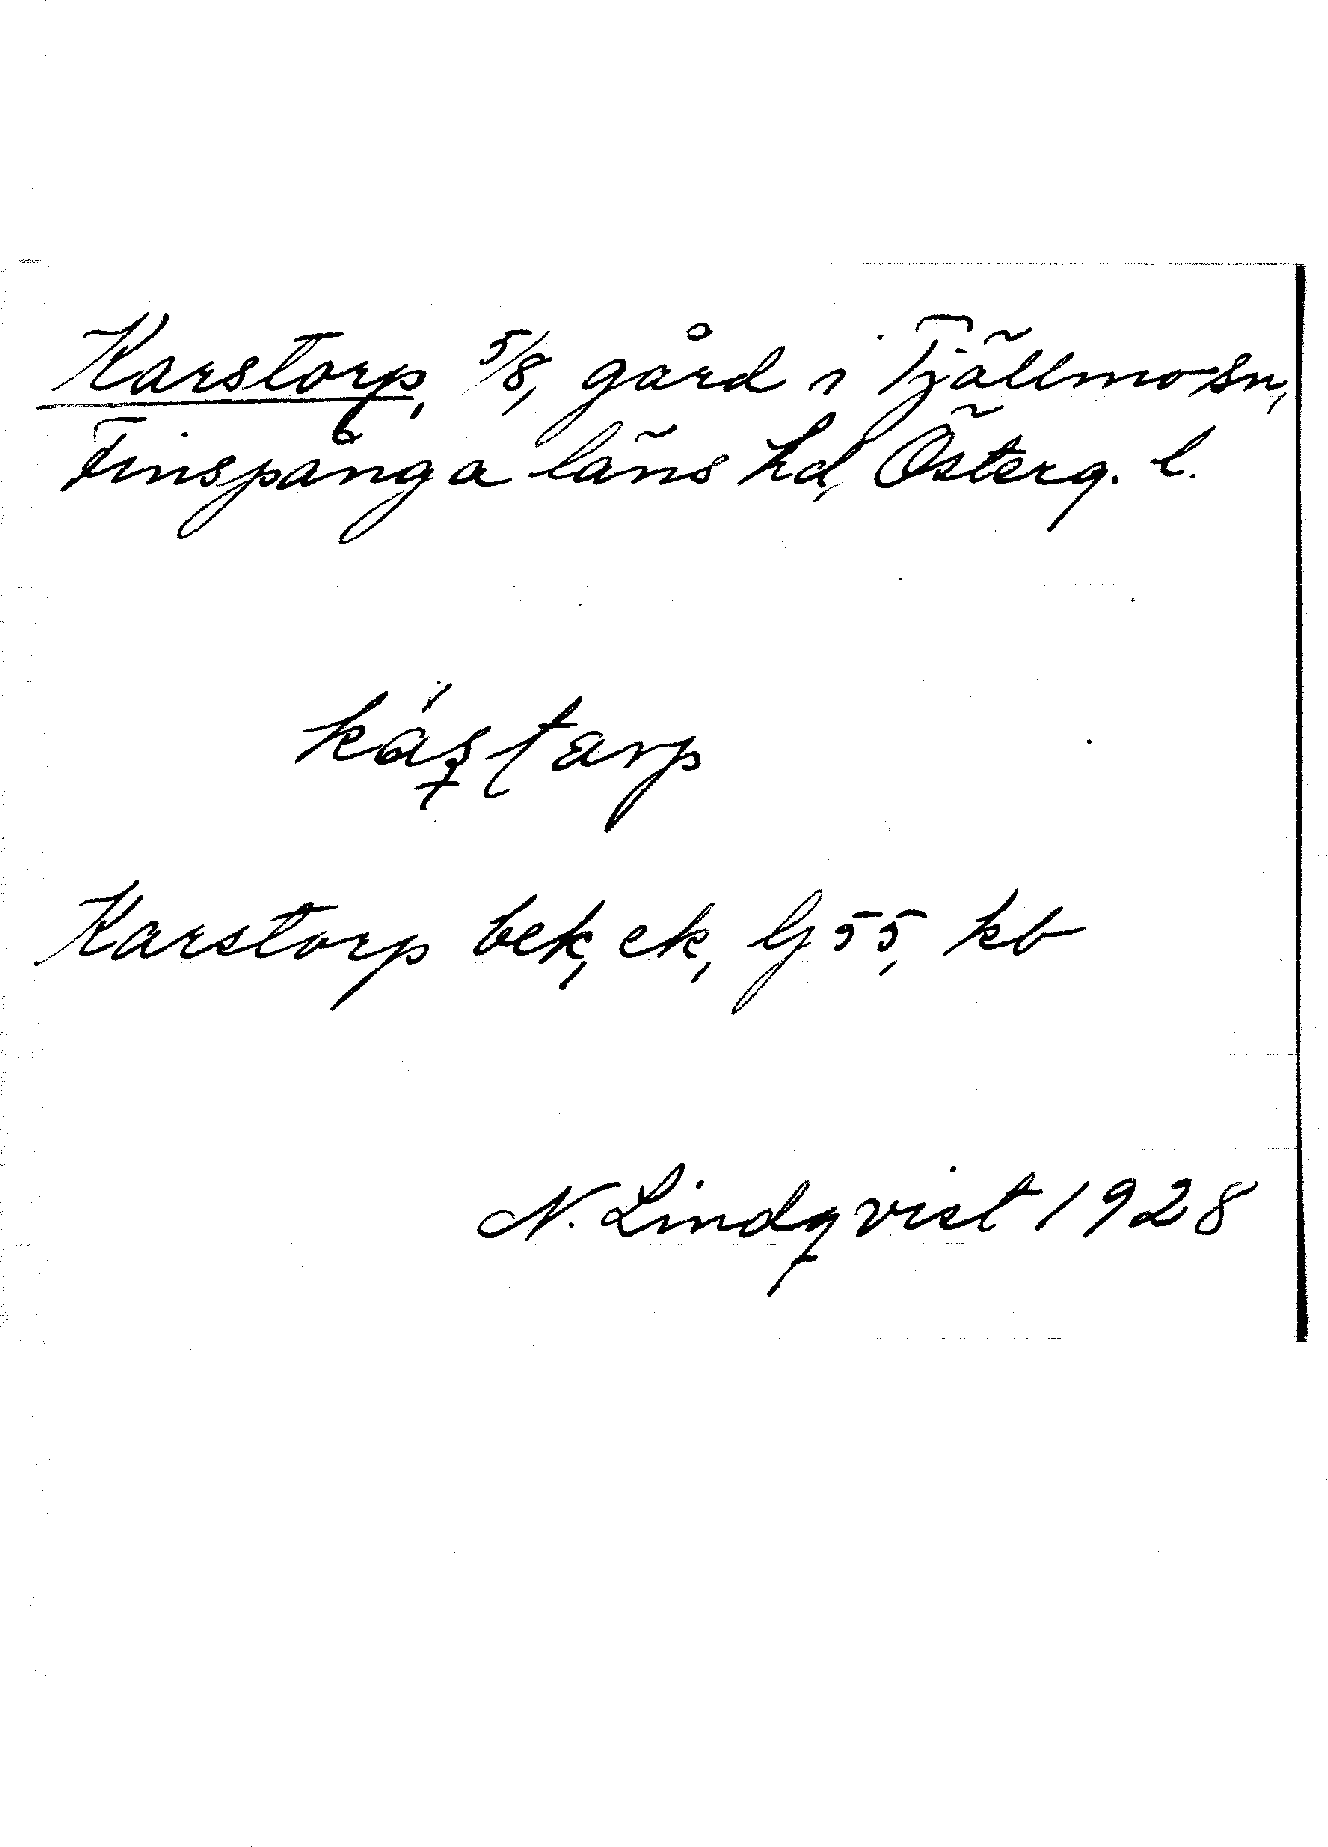 Karstorp, 5/8, gård i Tjällmo sn,
Finspånga läns hd, Österg. l.
kás̱tarp
Karstorp bek, ek, lj 55, kb
N. Lindqvist 1928